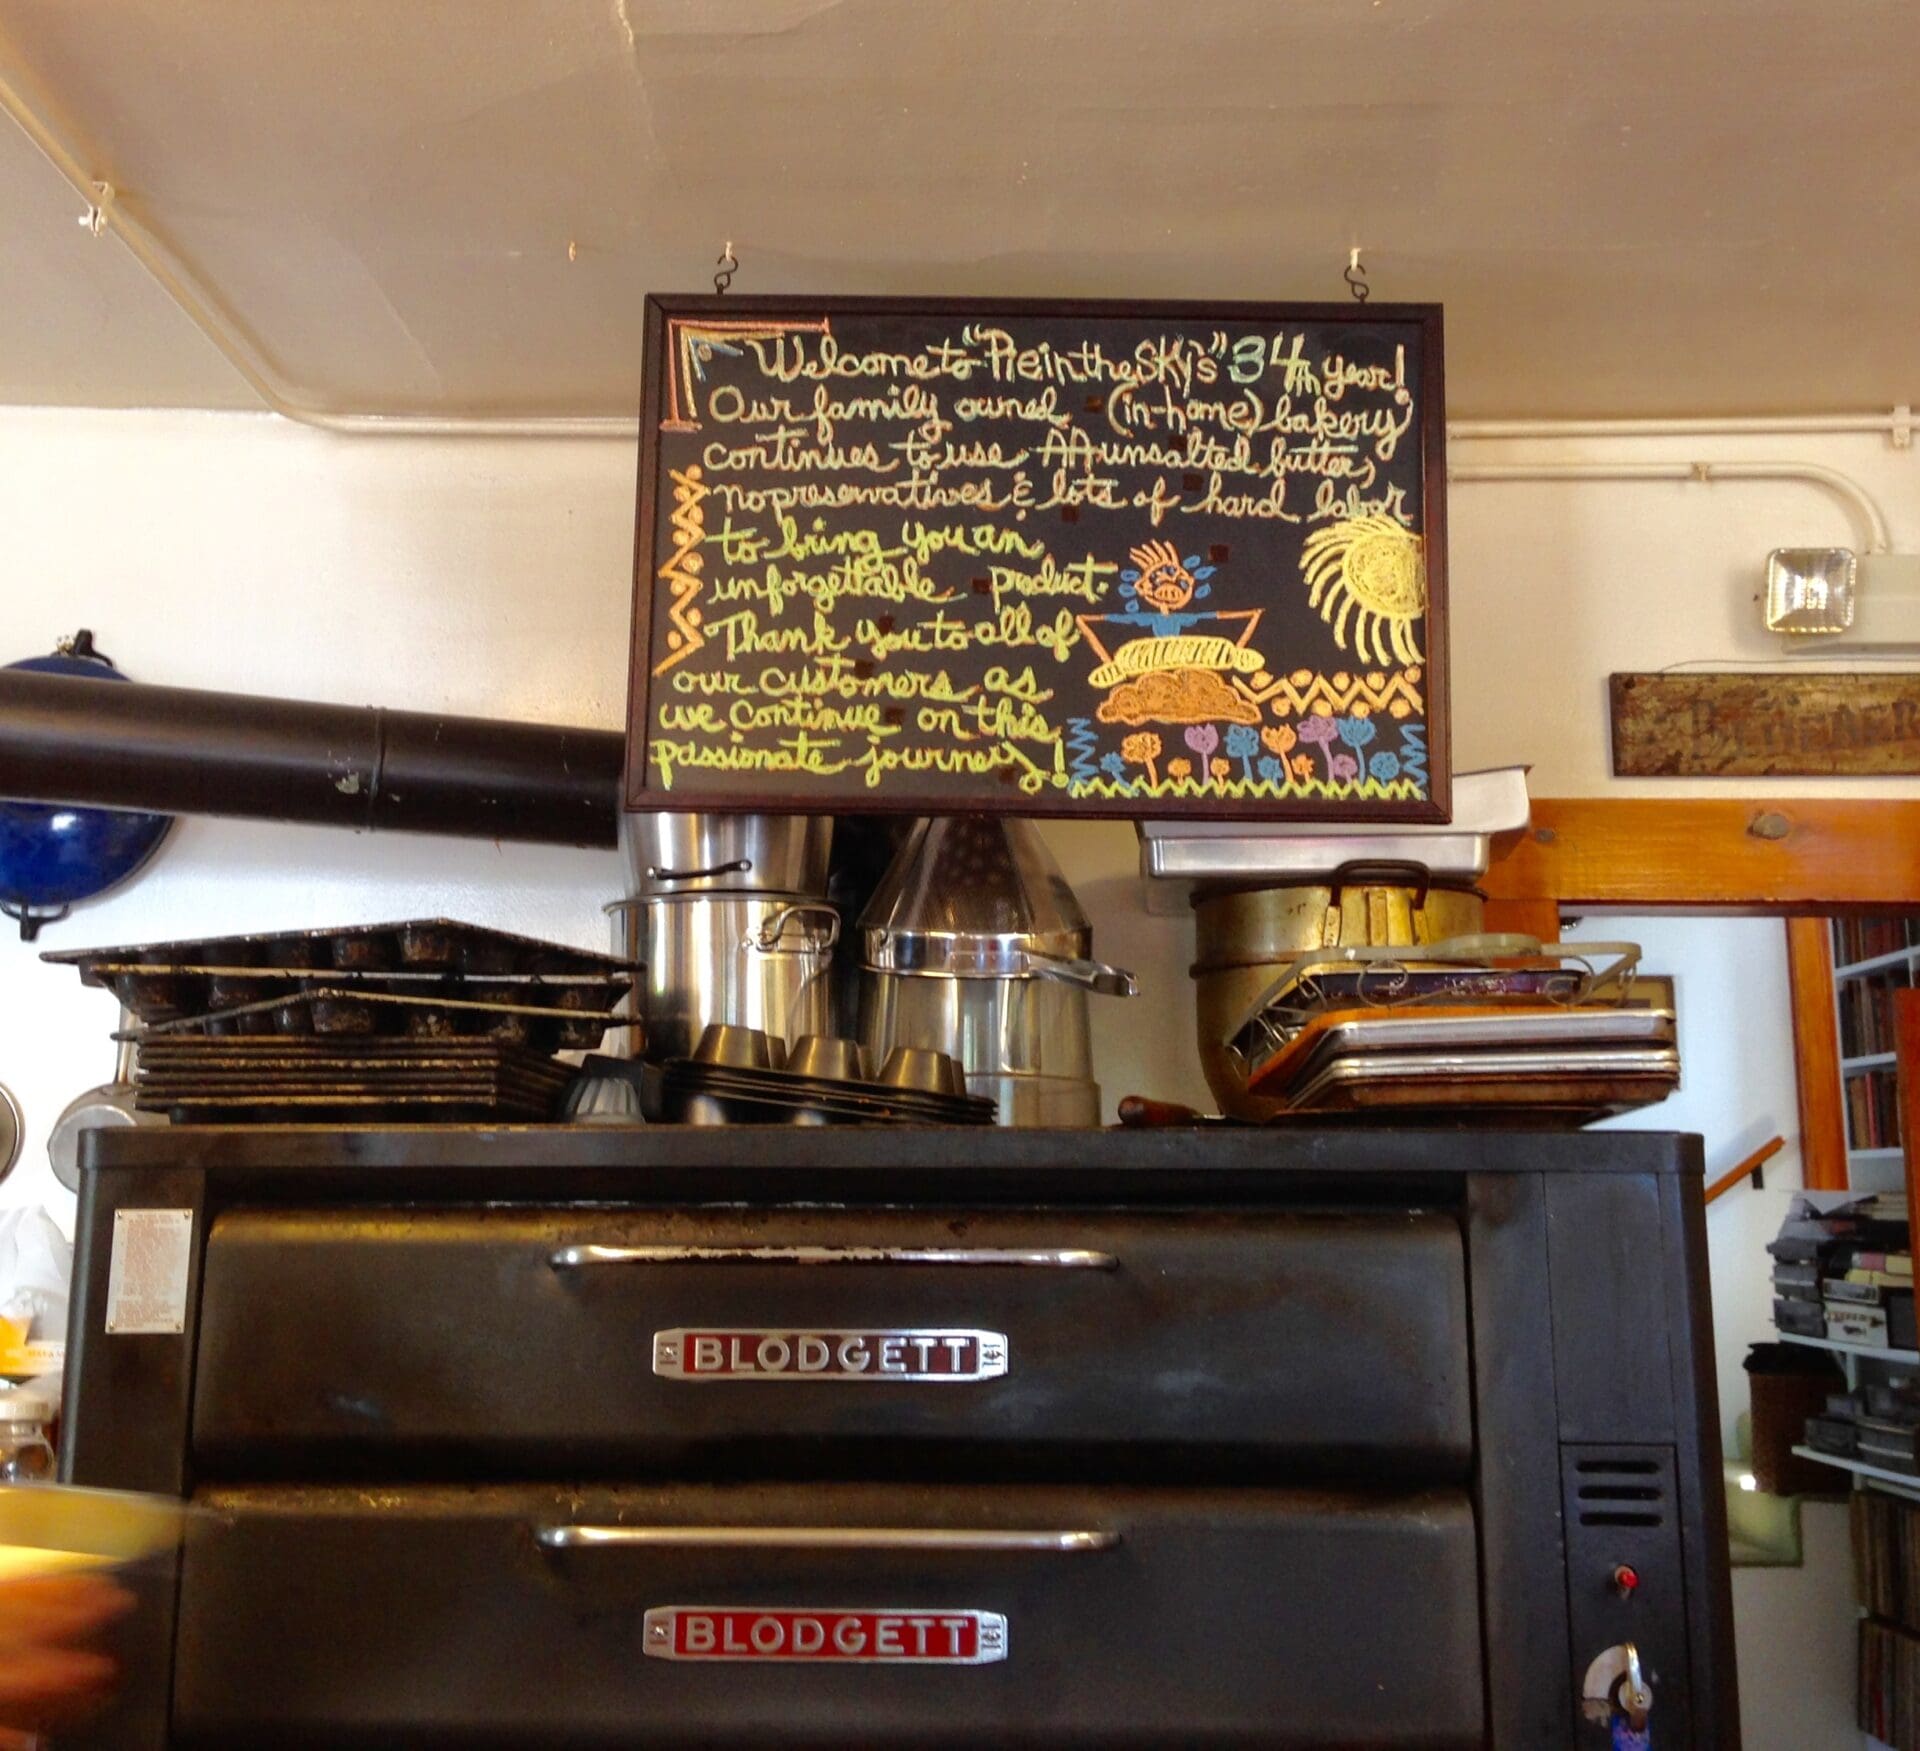 Welcome to "Pie in the Sky's" 34th year!
Our family owned (in-home) bakery
continues to use AA unsalted butter,
no preservatives & lots of hard labor
to bring you an
unforgettable product.
Thank you to all of
our customers as
we continue on this
passionate journey!
BLODGETT
BLODGETT